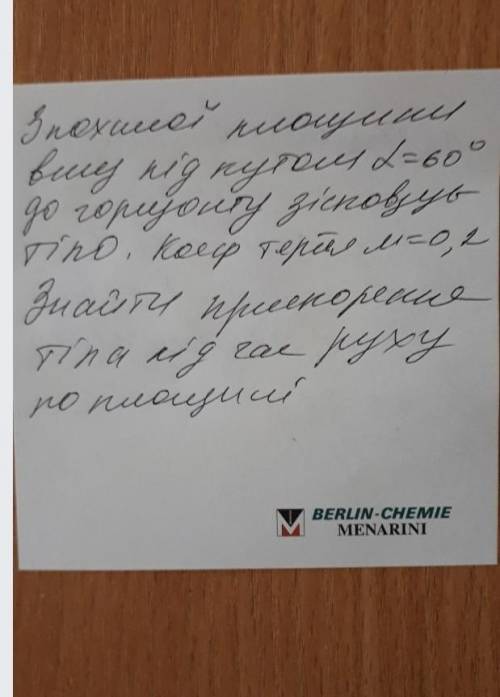 З похилої площини
вниз під кутом α=60°
до горизонту зісковзує
тіло. Коеф тертя м=0,2
Знайти прискорення
тіла під час руху
по площині
BERLIN-CHEMIE
MENARINI